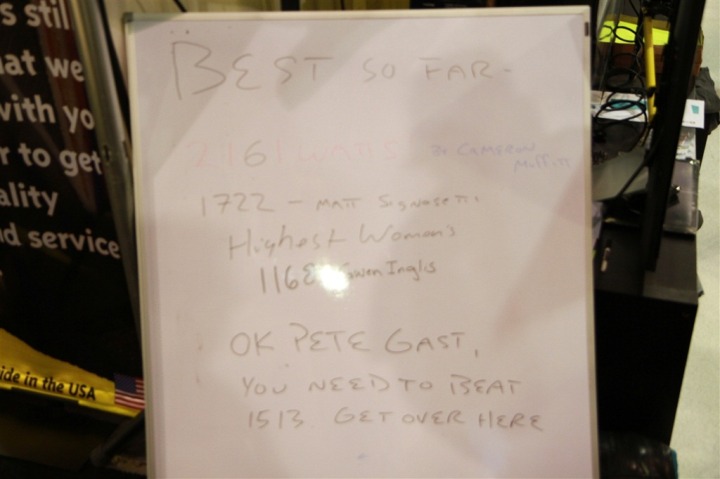 s still
at we
with yo
r to get
ality
d service
ide in the USA
BEST SO FAR -
2161 WATTS By CAMERON
MOFFITT
1722 - MATT
Highest Women's
Gwen Inglis
OK PETE GAST,
YOU NEED TO BEAT
1513 GET OVER HERE